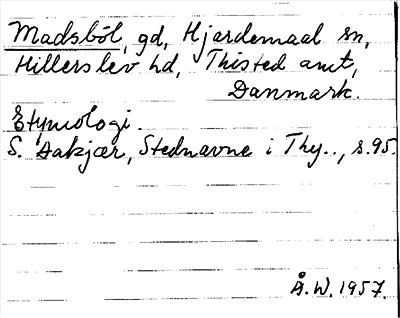 Madsböl, gd, Hjardemaal sn,
Hillerslev hd, Thisted amt,
Danmark.
Etymologi.
S. Aakjær, Stednavne i Thy.., s.95.
Å.W. 1957.